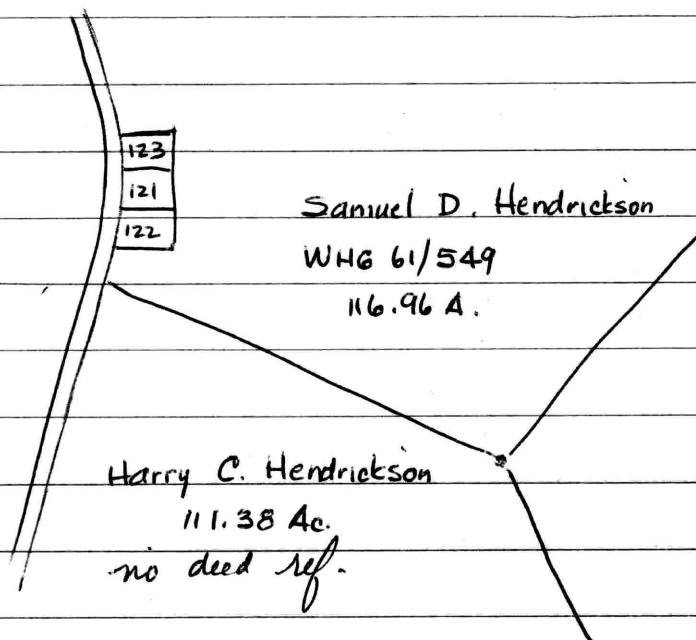 123
121
122
Samuel D. Hendrickson
WHG 61/549
116.96 A.
Harry C. Hendrickson
111.38 Ac.
no deed ref.